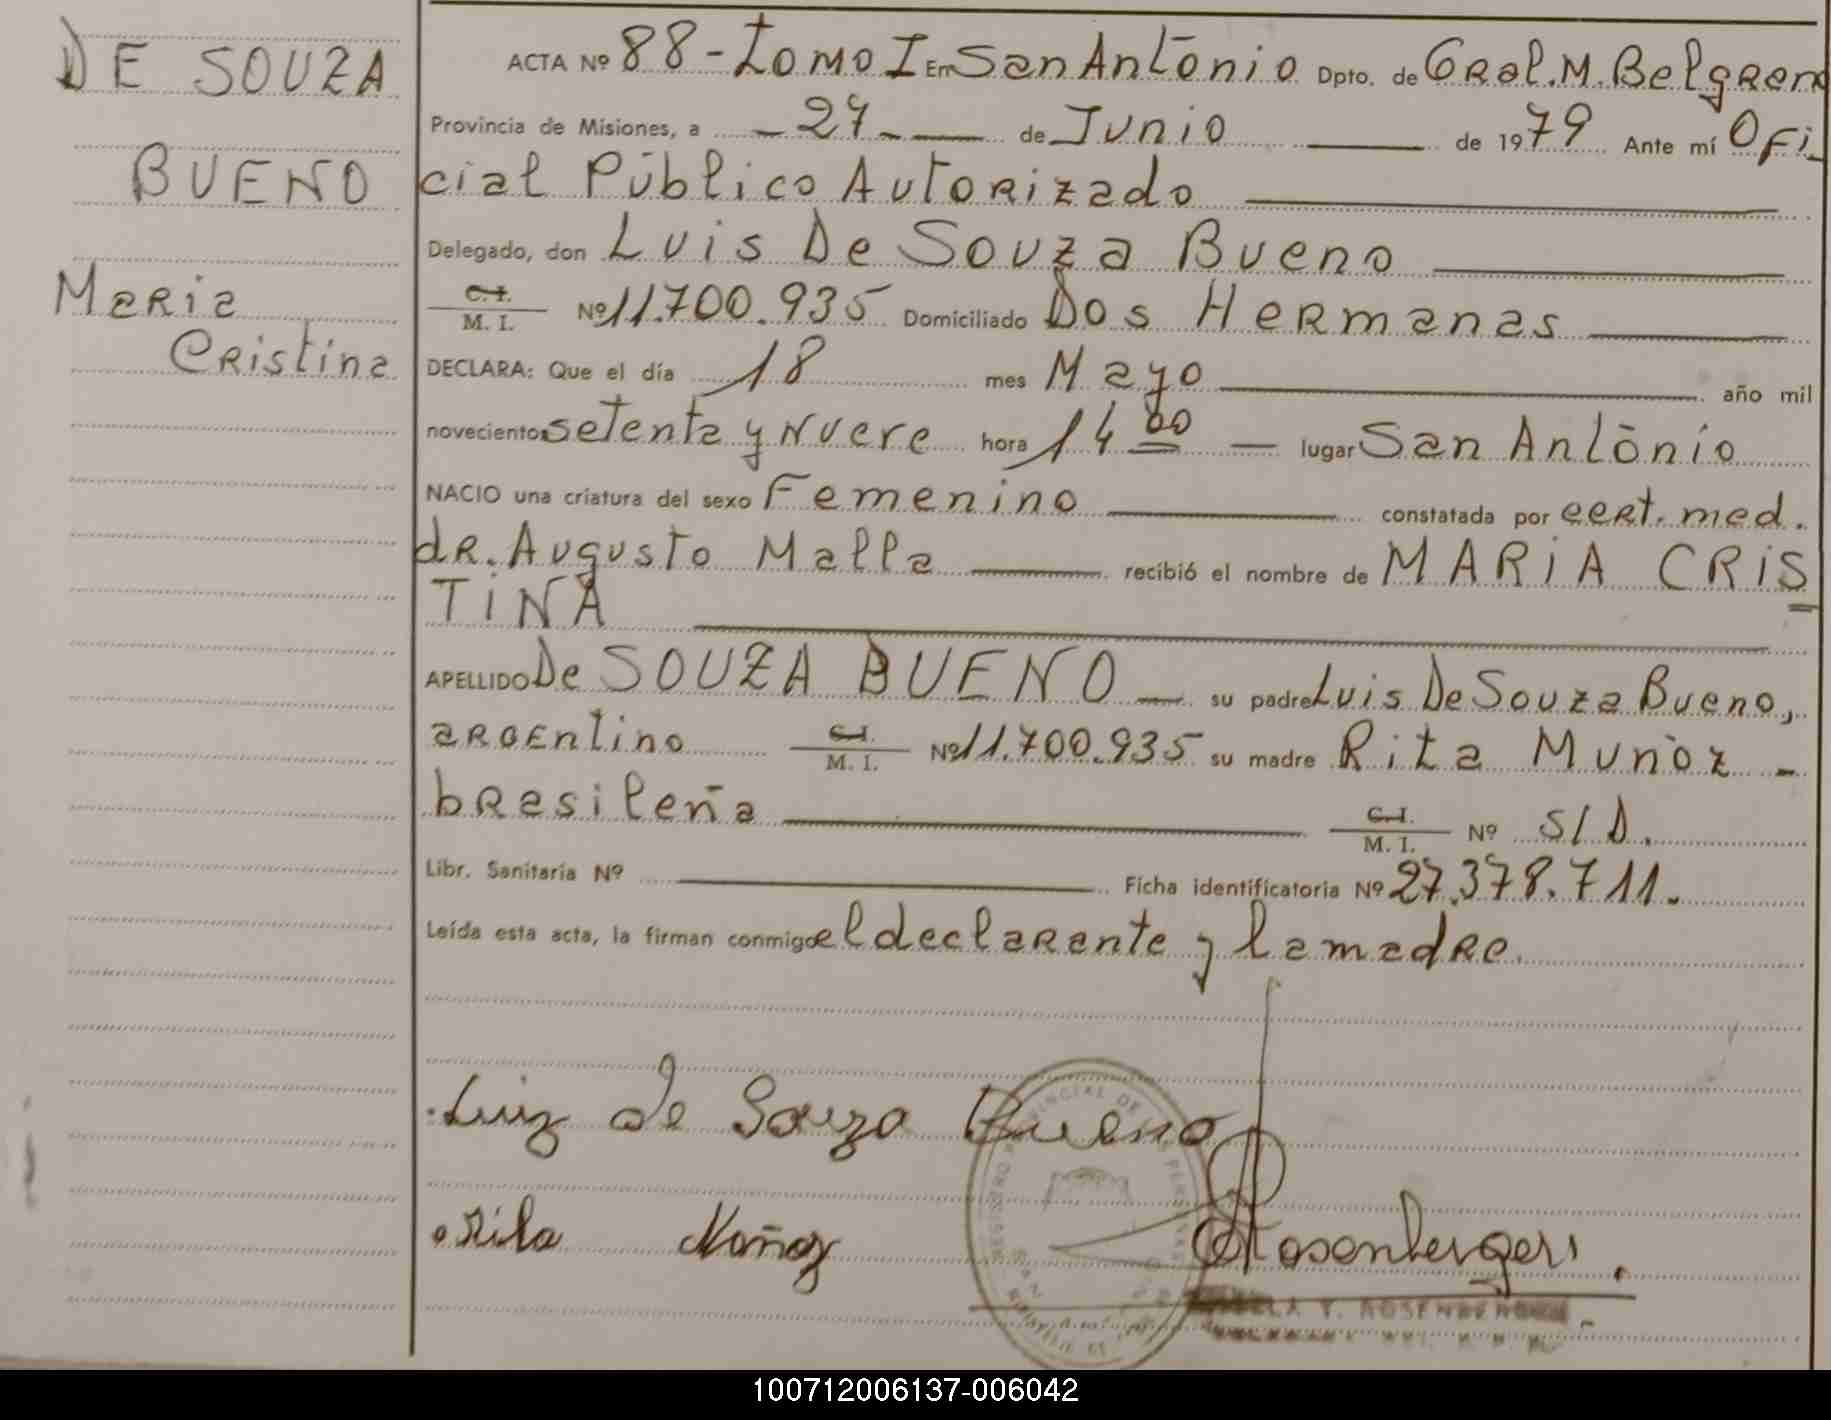 DE SOUZA
BUENO
Maria
Cristina
ACTA Nº 88 - Tomo I En San Antonio Dpto. de Gral. M. Belgrano
Provincia de Misiones, a - 27 - de Junio de 1979 Ante mí Ofi
cial Público Autorizado
Delegado, don Luis De Souza Bueno
C. I. / M. I. Nº 11.700.935 Domiciliado Dos Hermanas
DECLARA: Que el día 18 mes Mayo año mil
novecientos setenta y Nueve hora 14 00 lugar San Antonio
NACIO una criatura del sexo Femenino constatada por cert. med.
dR. Augusto Malla recibió el nombre de MARIA CRIS
TINA
APELLIDO De SOUZA BUENO su padre Luis De Souza Bueno,
argentino C. I. / M. I. Nº 11.700.935 su madre Rita Muñoz -
brasileña C. I. / M. I. Nº S/D.
Libr. Sanitaria Nº Ficha identificatoria Nº 27.378.711.
Leída esta acta, la firman conmigo el declarante y la madre.
Luiz de Souza Bueno
Rita
Rosenberger
REGISTRO PROVINCIAL DE LAS PERSONAS
100712006137-006042